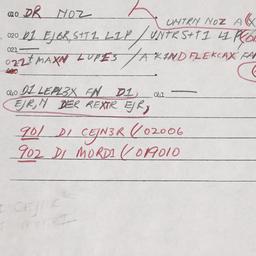 010 DR NOZ
UNTRN NOZ A
020 D1 EJBR S+T1 L1P / UNTRS+T1 L1P
021
022 + MAXN LUPES / A KIND FLEKCAX FA
040 D1 LEPL3X FN D1, 041
EJR, N DER REXTR EJR,
901 D1 CEJN3R (/02006
902 D1 MORD1 (/019010